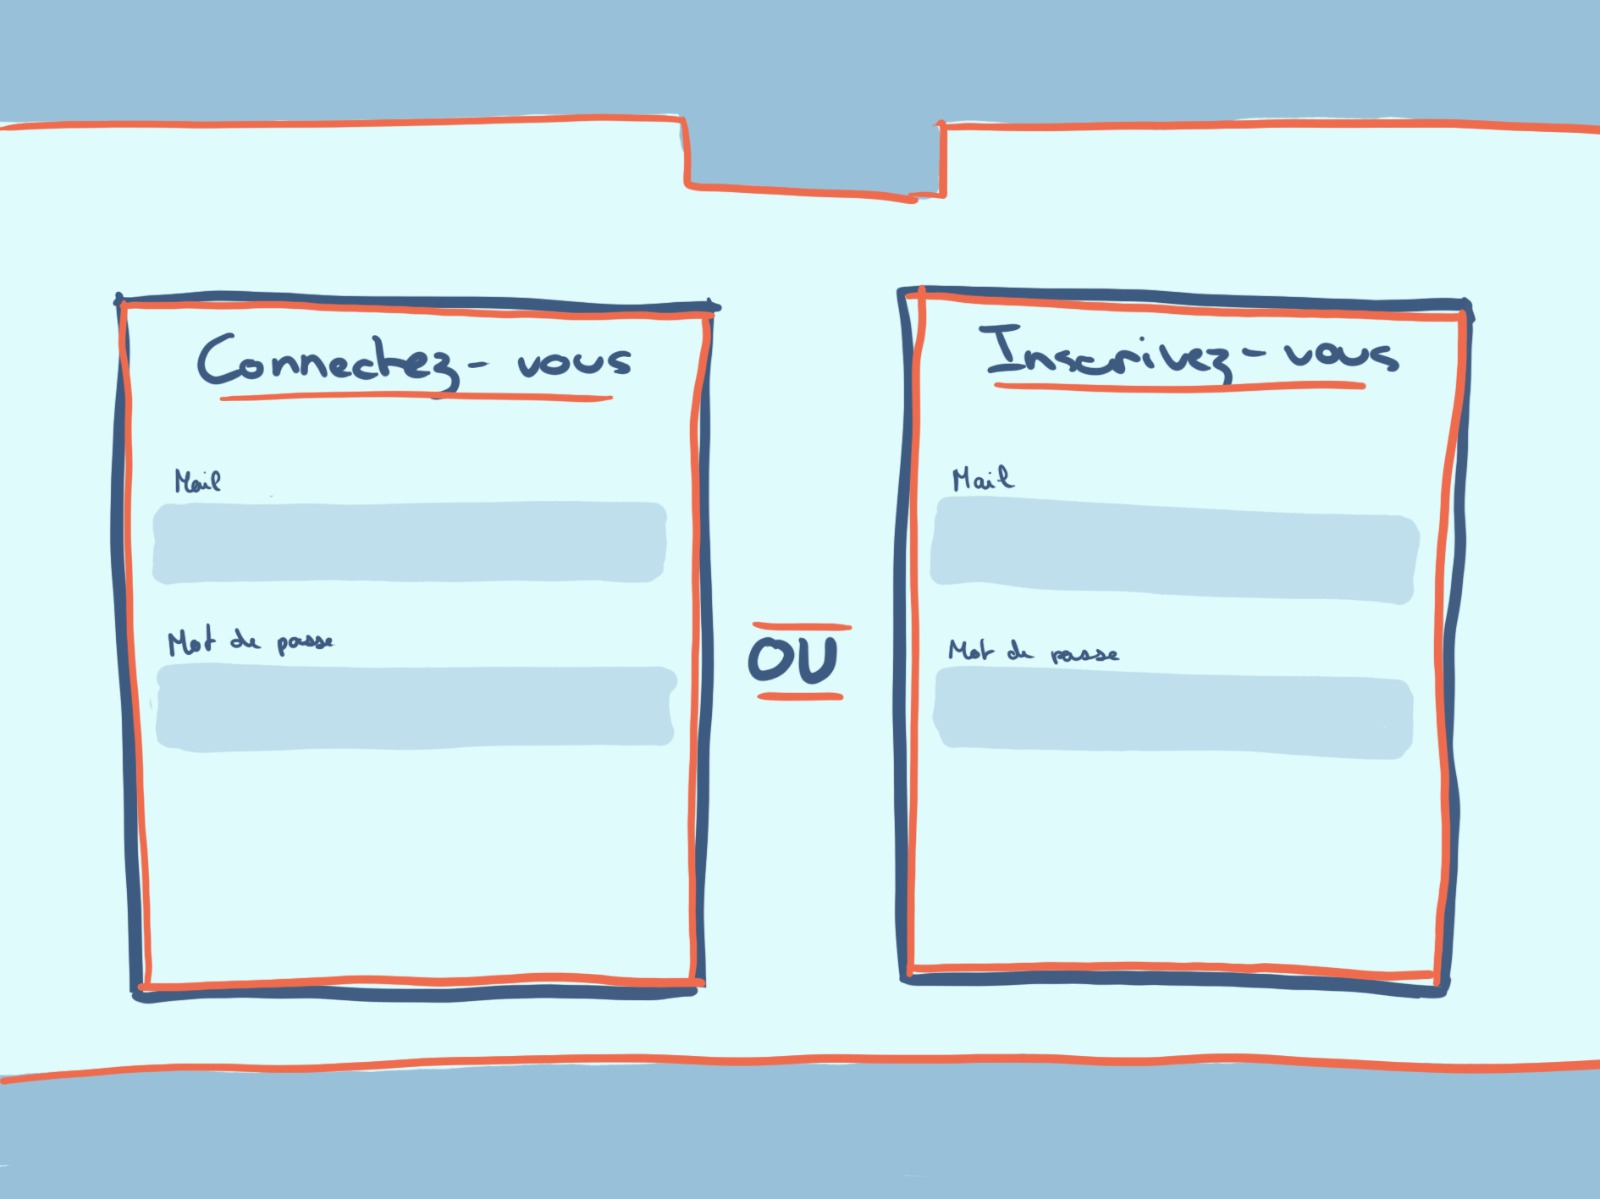 Connectez-vous
Mail
Mot de passe
OU
Inscrivez-vous
Mail
Mot de passe